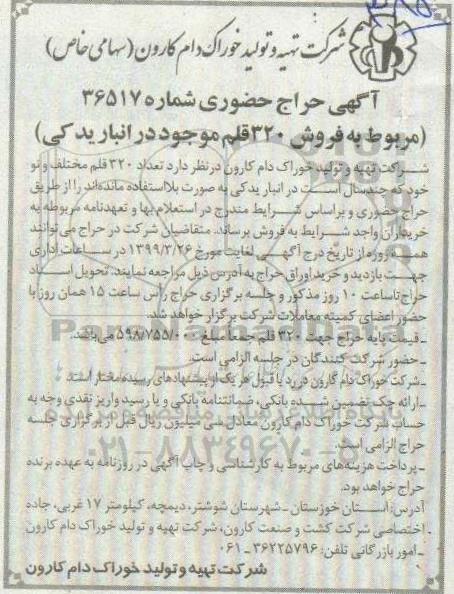 شرکت تهیه و تولید خوراک دام کارون (سهامی خاص)
آگهی حراج حضوری شماره ۳۶۵۱۷
(مربوط به فروش ۳۲۰ قلم موجود در انبار یدکی)
شرکت تهیه و تولید خوراک دام کارون درنظر دارد تعداد ۳۲۰ قلم مختلف و نو
خود که چندسال است در انبار یدکی به صورت بلااستفاده مانده‌اند را از طریق
حراج حضوری و براساس شرایط مندرج در استعلام بها و تعهدنامه مربوطه به
خریداران واجد شرایط به فروش برساند. متقاضیان شرکت در حراج می‌توانند
همه روزه از تاریخ درج آگهی لغایت مورخ ۱۳۹۹/۳/۲۶ در ساعات اداری
جهت بازدید و خرید اوراق حراج به آدرس ذیل مراجعه نمایند. تحویل اسناد
حراج تا ساعت ۱۰ روز مذکور و جلسه برگزاری حراج رأس ساعت ۱۵ همان روز با
حضور اعضای کمیته معاملات شرکت برگزار خواهد شد.
ـ قیمت پایه حراج جهت ۳۲۰ قلم جمعاً مبلغ می‌باشد.
ـ حضور شرکت کنندگان در جلسه الزامی است.
ـ شرکت خوراک دام کارون در رد یا قبول هر یک از پیشنهادهای رسیده مختار است.
ـ ارائه چک تضمین شده بانکی، ضمانتنامه بانکی و یا رسید واریز نقدی وجه به
حساب شرکت خوراک دام کارون معادل سی میلیون ریال قبل از برگزاری جلسه
حراج الزامی است.
ـ پرداخت هزینه‌های مربوط به کارشناسی و چاپ آگهی در روزنامه به عهده برنده
حراج خواهد بود.
آدرس: استان خوزستان ـ شهرستان شوشتر، دیمچه، کیلومتر ۱۷ غربی، جاده
اختصاصی شرکت کشت و صنعت کارون، شرکت تهیه و تولید خوراک دام کارون
ـ امور بازرگانی تلفن: ۳۶۲۲۵۷۹۶ ـ ۰۶۱
شرکت تهیه و تولید خوراک دام کارون
ParsNamadData
۰۲۱-۸۸۳۴۹۶۷۰-۵